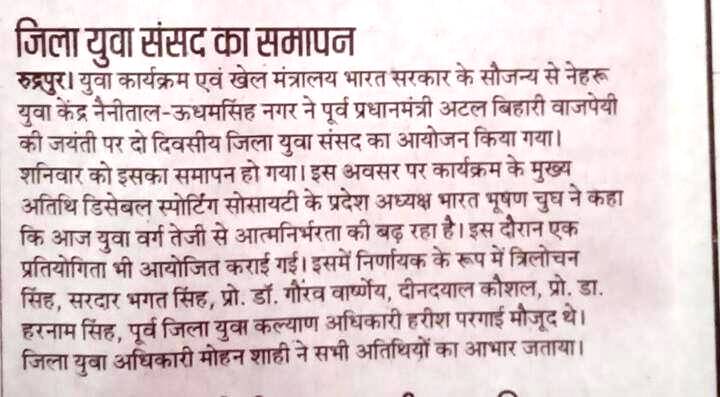 जिला युवा संसद का समापन
रुद्रपुर। युवा कार्यक्रम एवं खेल मंत्रालय भारत सरकार के सौजन्य से नेहरू
युवा केंद्र नैनीताल-ऊधमसिंह नगर ने पूर्व प्रधानमंत्री अटल बिहारी वाजपेयी
की जयंती पर दो दिवसीय जिला युवा संसद का आयोजन किया गया।
शनिवार को इसका समापन हो गया। इस अवसर पर कार्यक्रम के मुख्य
अतिथि डिसेबल स्पोर्टिंग सोसायटी के प्रदेश अध्यक्ष भारत भूषण चुघ ने कहा
कि आज युवा वर्ग तेजी से आत्मनिर्भरता की बढ़ रहा है। इस दौरान एक
प्रतियोगिता भी आयोजित कराई गई। इसमें निर्णायक के रूप में त्रिलोचन
सिंह, सरदार भगत सिंह, प्रो. डॉ. गौरव वार्ष्णेय, दीनदयाल कौशल, प्रो. डा.
हरनाम सिंह, पूर्व जिला युवा कल्याण अधिकारी हरीश परगाई मौजूद थे।
जिला युवा अधिकारी मोहन शाही ने सभी अतिथियों का आभार जताया।